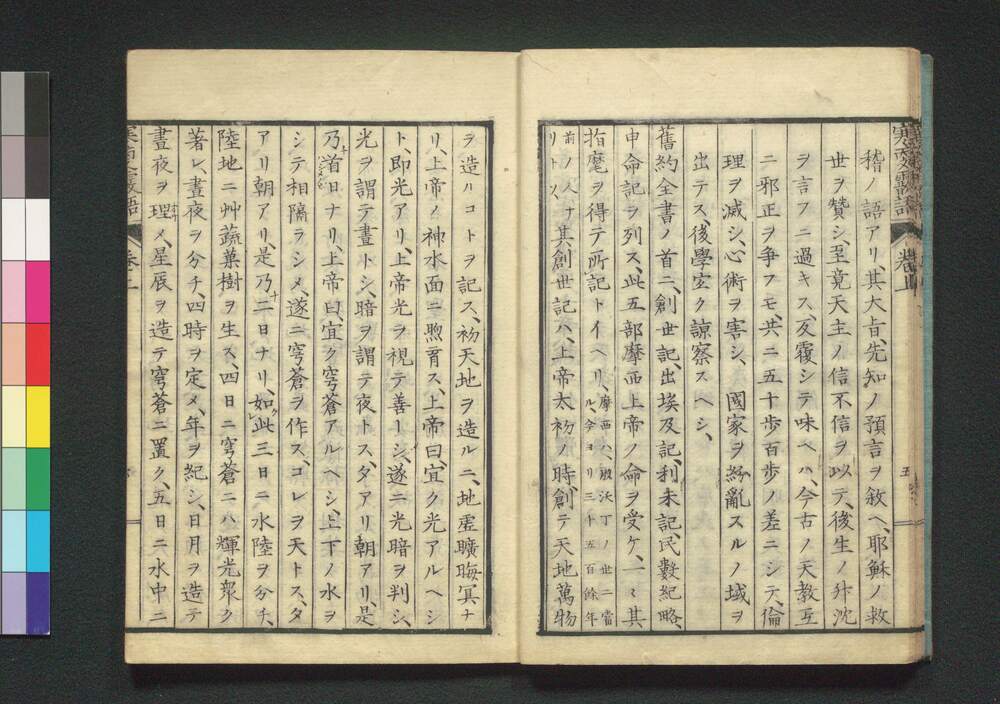 稽ノ語アリ、其大旨、先知ノ預言ヲ敘ヘ、耶穌ノ救
世ヲ贊シ、至竟天主ノ信不信ヲ以テ、後生ノ升沈
ヲ言フニ過キス、反覆シテ味ヘハ、今古ノ天教互
ニ邪正ヲ爭フモ、共ニ五十步百步ノ差ニシテ、倫
理ヲ滅シ、心術ヲ害シ、國家ヲ紛亂スルノ域ヲ
出テス、後學宜ク諒察スヘシ、
舊約全書ノ首ニ、創世記、出埃及記、利未記、民數紀略、
申命記ヲ列ス、此五部摩西上帝ノ命ヲ受ケ、一々其
指麾ヲ得テ所記トイヘリ、摩西ハ、殷沃丁ノ世ニ當ル、今ヨリ三千五百餘年
前ノ人ナリトソ、其創世記ハ、上帝太初ノ時、創テ天地萬物
ヲ造ハコトヲ記ス、初天地ヲ造ルニ、地虛曠晦冥ナ
リ、上帝ノ神水面ニ煦育ス、上帝曰、宜ク光アルヘシ
ト、即光アリ、上帝光ヲ視テ善ーシ、遂ニ光暗ヲ判シ、
光ヲ謂テ晝トシ、暗ヲ謂テ夜トス、夕アリ朝アリ、是
乃首日ナリ、上帝曰、宜ク穹蒼アルヘシ、上下ノ水ヲ
シテ相隔ラシメ、遂ニ穹蒼ヲ作ス、コレヲ天トス、夕
アリ朝アリ、是乃二日ナリ、如此三日ニ水陸ヲ分チ、
陸地ニ艸蔬菓樹ヲ生ス、四日ニ穹蒼ニハ輝光衆ク
著レ、晝夜ヲ分チ、四時ヲ定メ、年ヲ紀シ、日月ヲ造テ
晝夜ヲ理メ、星辰ヲ造テ穹蒼ニ置ク、五日ニ水中ニ